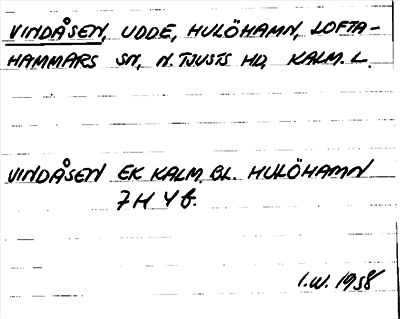 VINDÅSEN, UDDE, HULÖHAMN, LOFTA-
HAMMARS SN, N. TJUSTS HD, KALM. L.
VINDÅSEN EK KALM. BL. HULÖHAMN
7 H Y f.
I.W. 1958